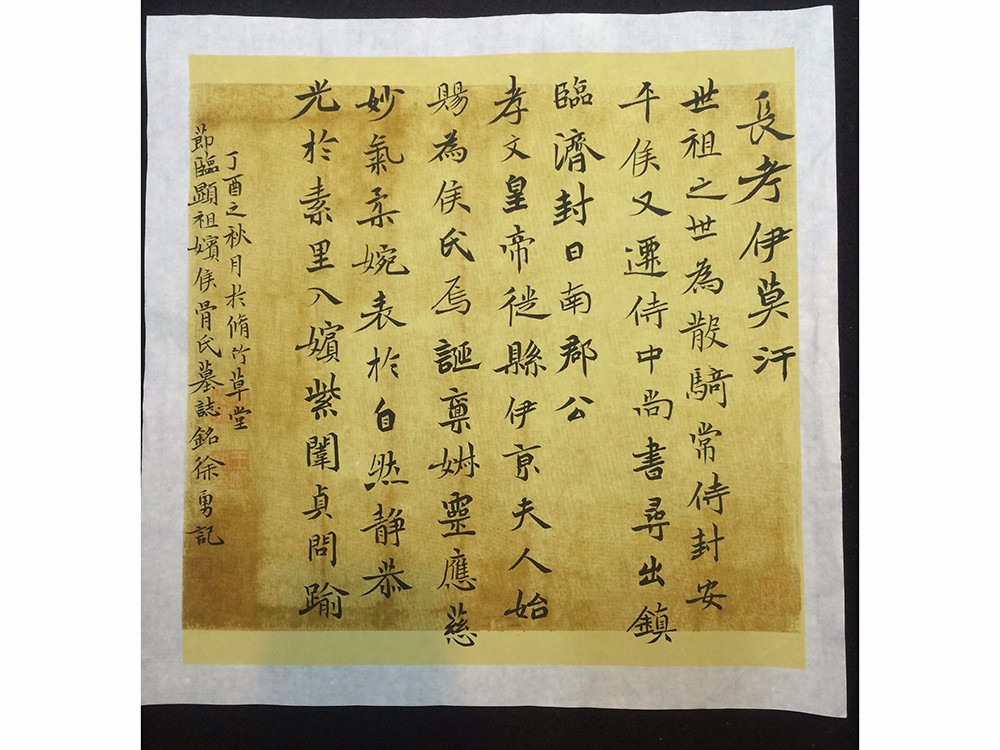 長考伊莫汗
世祖之世為散騎常侍封安
平侯又遷侍中尚書尋出鎮
臨濟封日南郡公
孝文皇帝徙縣伊京夫人始
賜為侯氏焉誕稟姗靈應慈
妙氣柔婉表於自然静恭
光於素里入嬪紫闈貞問踰
丁酉之秋月於脩竹草堂
節臨顯祖嬪侯骨氏墓誌銘徐勇記